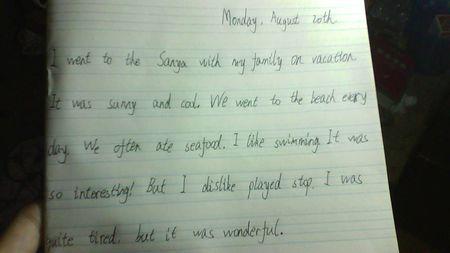 Monday, August 20th.
I went to the Sanya with my family on vacation.
It was sunny and cool. We went to the beach every
day. We often ate seafood. I like swimming. It was
so interesting! But I dislike played stop. I was
quite tired, but it was wonderful.